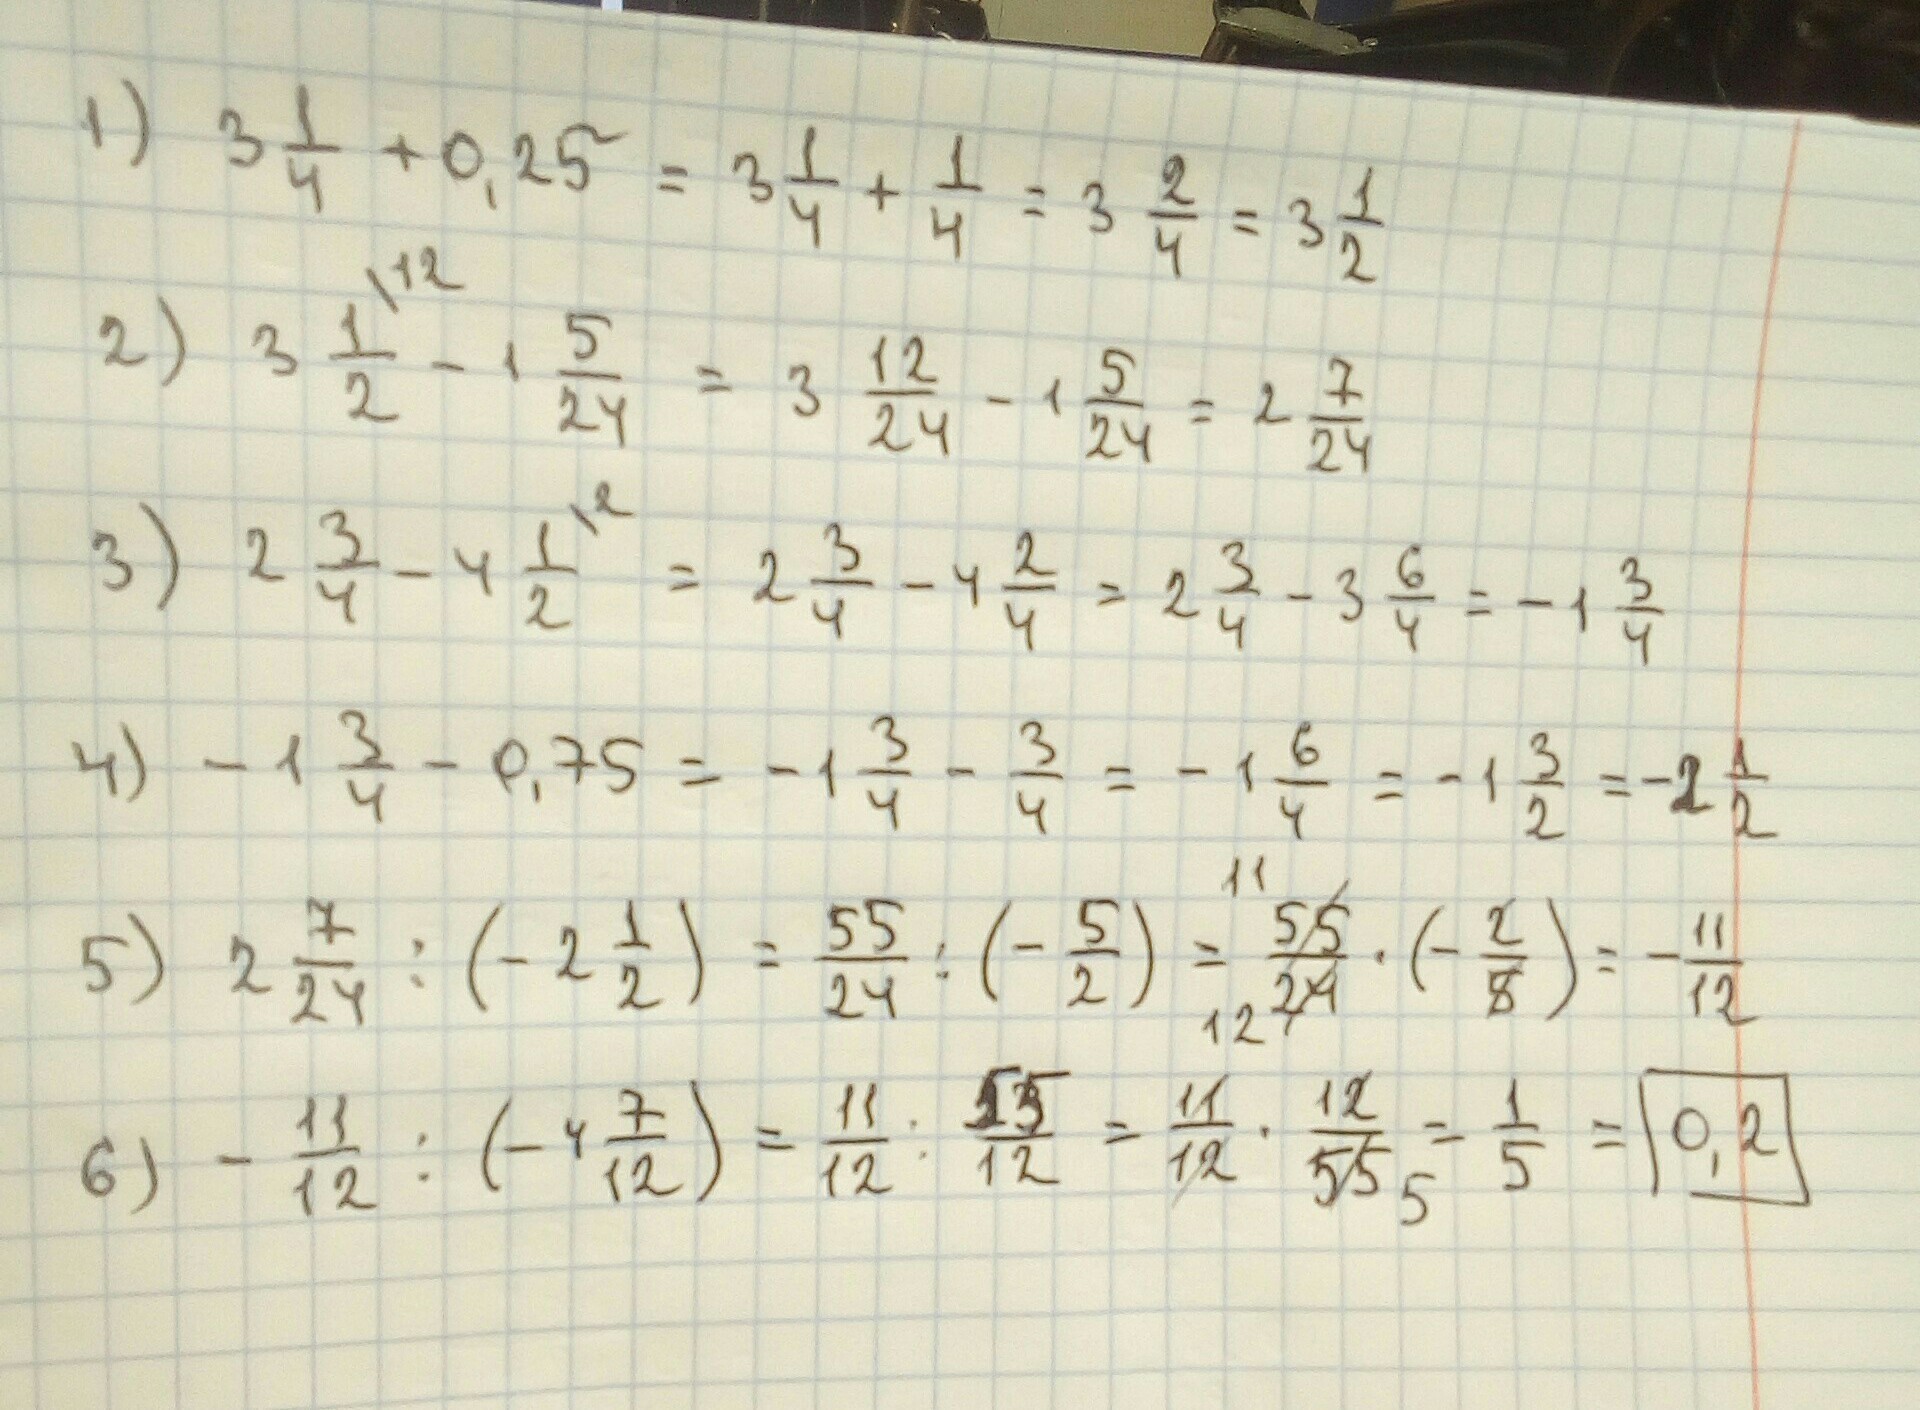 1) 3 1/4 + 0,25 = 3 1/4 + 1/4 = 3 2/4 = 3 1/2
2) 3 1/2 \12 - 1 5/24 = 3 12/24 - 1 5/24 = 2 7/24
3) 2 3/4 - 4 1/2 \2 = 2 3/4 - 4 2/4 = 2 3/4 - 3 6/4 = -1 3/4
4) -1 3/4 - 0,75 = -1 3/4 - 3/4 = -1 6/4 = -1 3/2 = -2 1/2
5) 2 7/24 : (-2 1/2) = 55/24 : (-5/2) = 11 55/24 12 · (-2/5) = -11/12
6) -11/12 : (-4 7/12) = 11/12 : 55/12 = 11/12 · 12/55 5 = 1/5 = 0,2